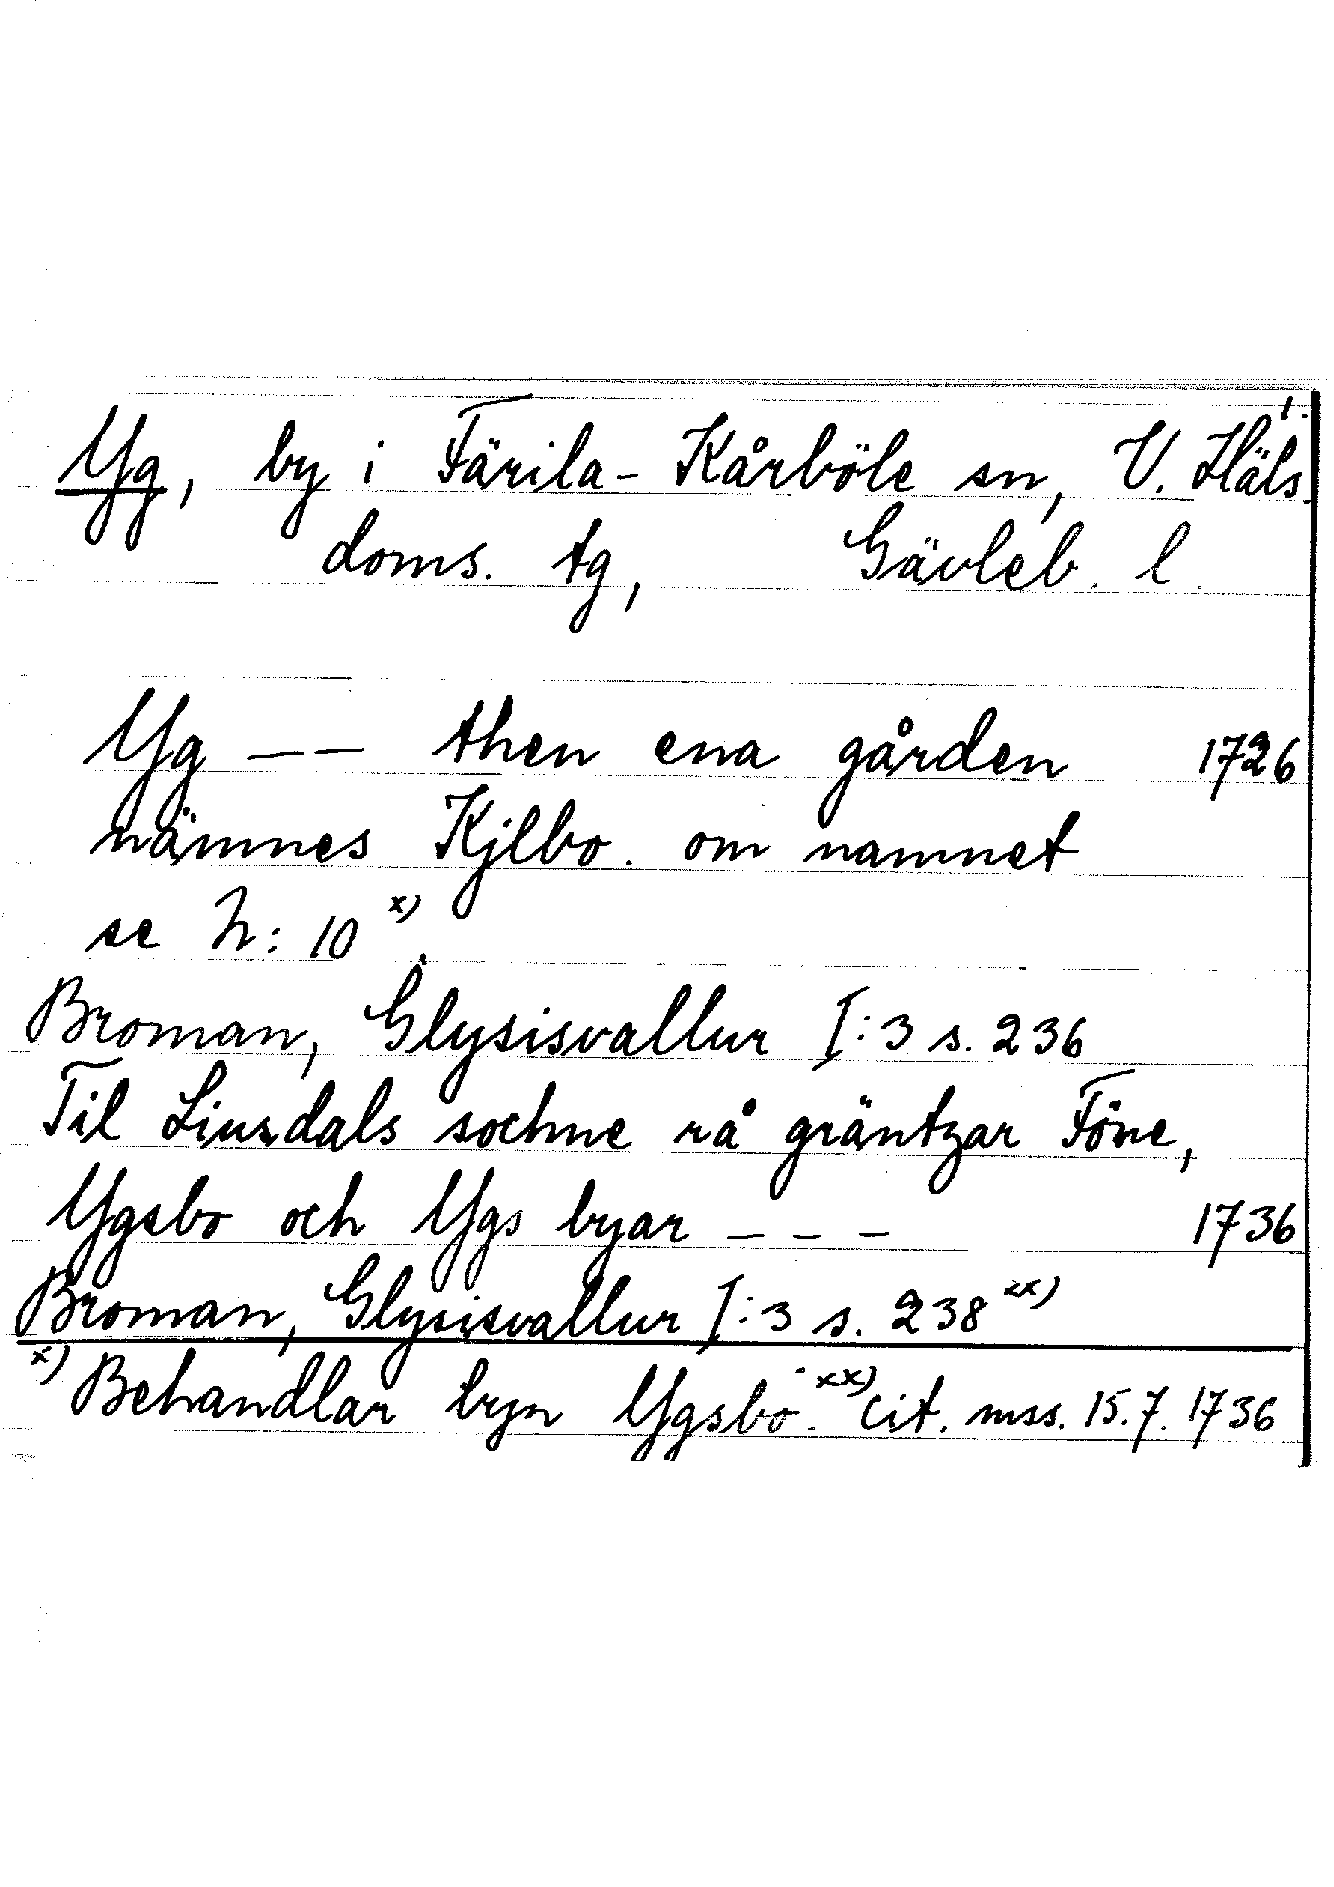 1.
Yg, by i Färila-Kårböle sn, V. Häls.
doms. tg, Gävleb. l.
Yg — — then ena gården 1726
nämnes Kjlbo. om namnet
se N: 10 x).
Broman, Glysisvallur I:3 s. 236
Til Liusdals sochne rå gräntzar Föne,
Ygsbo och Ygs byar _ _ _ 1736
Broman, Glysisvallur I:3 s. 238 xx)
x) Behandlar byn Ygsbo. xx) cit. mss. 15.7.1736